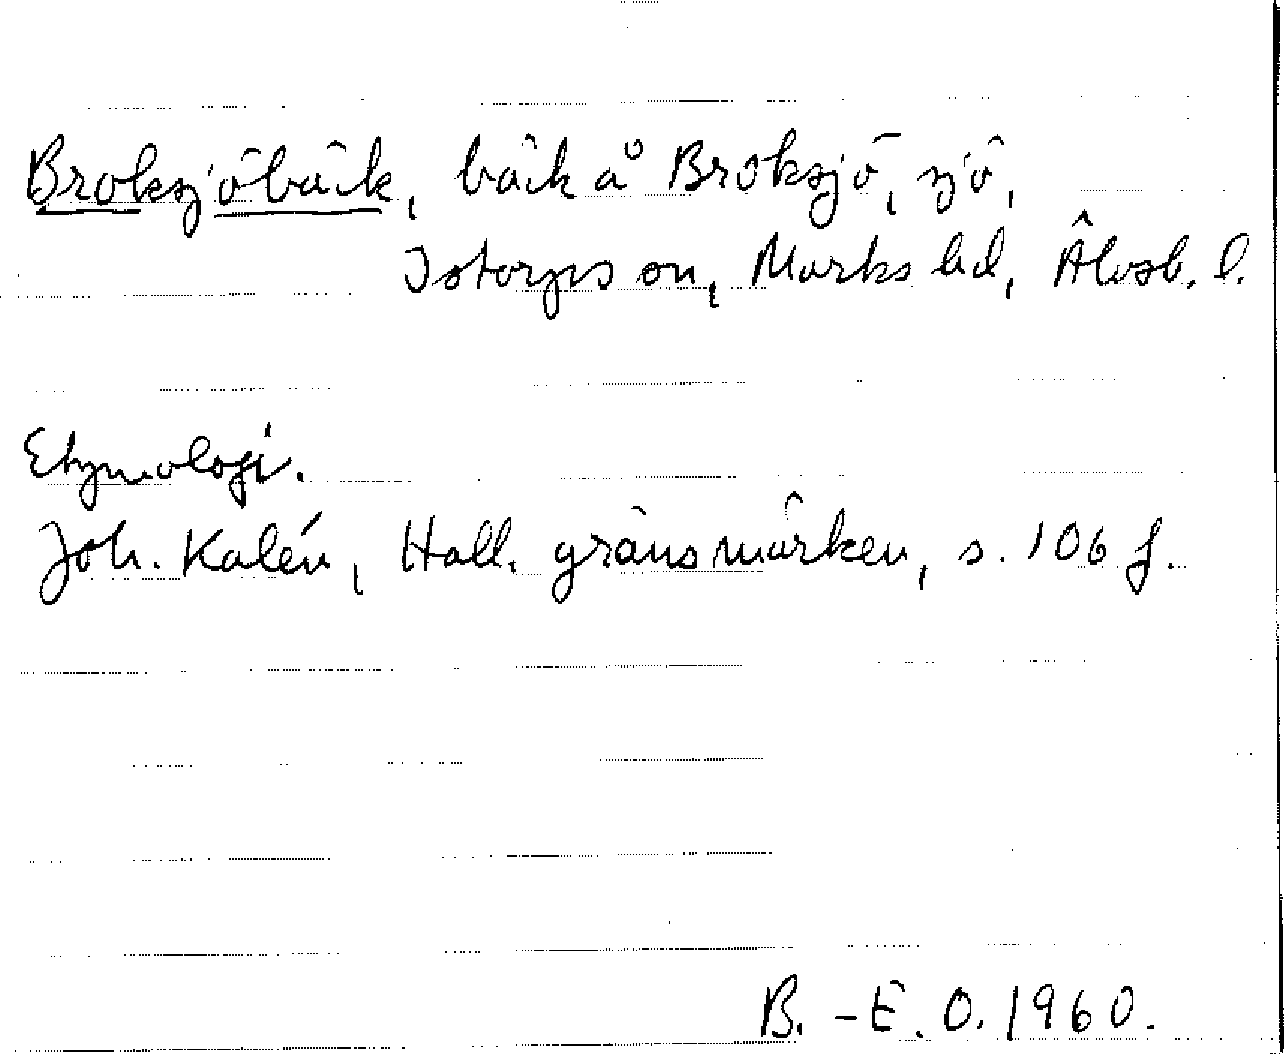 Broksjöbäck, bäck å Broksjö, sjö,
Istorps sn, Marks hd, Älvsb. l.
Etymologi.
Joh. Kalén, Hall. gränsmärken, s. 106 f.
B.-E. O. 1960.